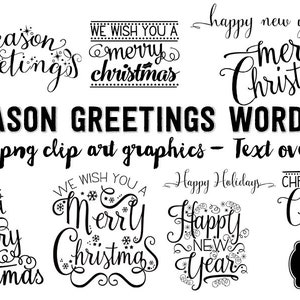 eason
eetings
WE WISH YOU A
merry
christmas
happy new
merry
Chris
ASON GREETINGS WORD
png clip art graphics - Text ove
WE WISH YOU A
Merry
Christmas
Happy Holidays
Happy
NEW
Year